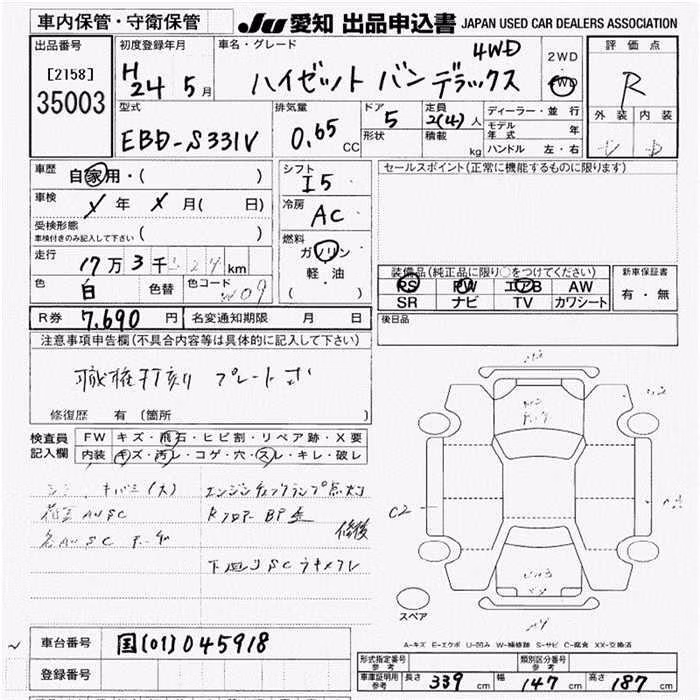 車内保管・守衛保管 JU 愛知 出品申込書 JAPAN USED CAR DEALERS ASSOCIATION
出品番号
[2158]
35003
初度登録年月
H 24 5月
車名・グレード
4WD
ハイゼット バン デラックス
2WD
4WD
評価点
R
外装 内装
型式
EBD-S331V
排気量
0.65 CC
ドア 5
形状
定員 2(4)人
積載 kg
ディーラー・並行
モデル年式 年
ハンドル 左・右
車歴
自家用・( )
車検
年 月( 日)
受検形態
車検付きのみ記入して下さい ( )
走行
17万3千 km
色
白
色替
色コード W09
シフト
I5
冷房
AC
燃料
ガソリン
軽・油
( )
セールスポイント(正常に機能するものに限ります)
装備品(純正品に限り○をつけてください)
PS PW エアB AW
SR ナビ TV カワシート
新車保証書
有・無
後日品
R券 7,690 円
名変通知期限 月 日
注意事項申告欄(不具合内容等は具体的に記入して下さい)
職権打刻 プレート
修復歴 有(箇所
検査員記入欄
FW キズ・飛石・ヒビ割・リペア跡・X要
内装 キズ・汚レ・コゲ・穴・スレ・キレ・破レ
エンジンチェックランプ点灯
修後
下廻りSC
C2
スペア
A-キズ E-エクボ U-凹み W-補修跡 S-サビ C-腐食 XX-交換済
車台番号 国[01]045918
登録番号
形式指定番号 参考
類別区分番号 参考
車庫証明用 参考 長さ 339 cm 幅 147 cm 高さ 187 cm